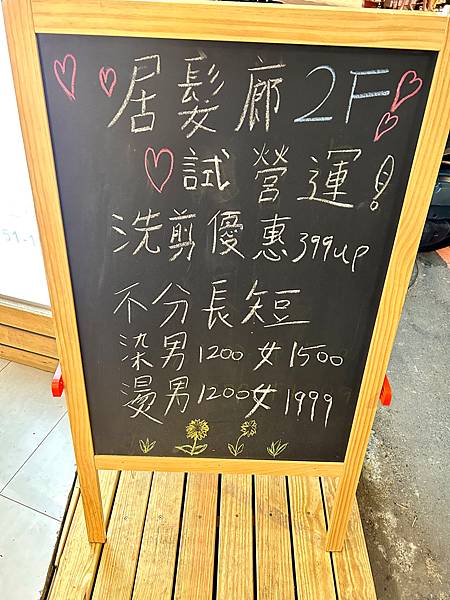 居髮廊2F
試營運!
洗剪優惠399up
不分長短
染男1200女1500
燙男1200女1999